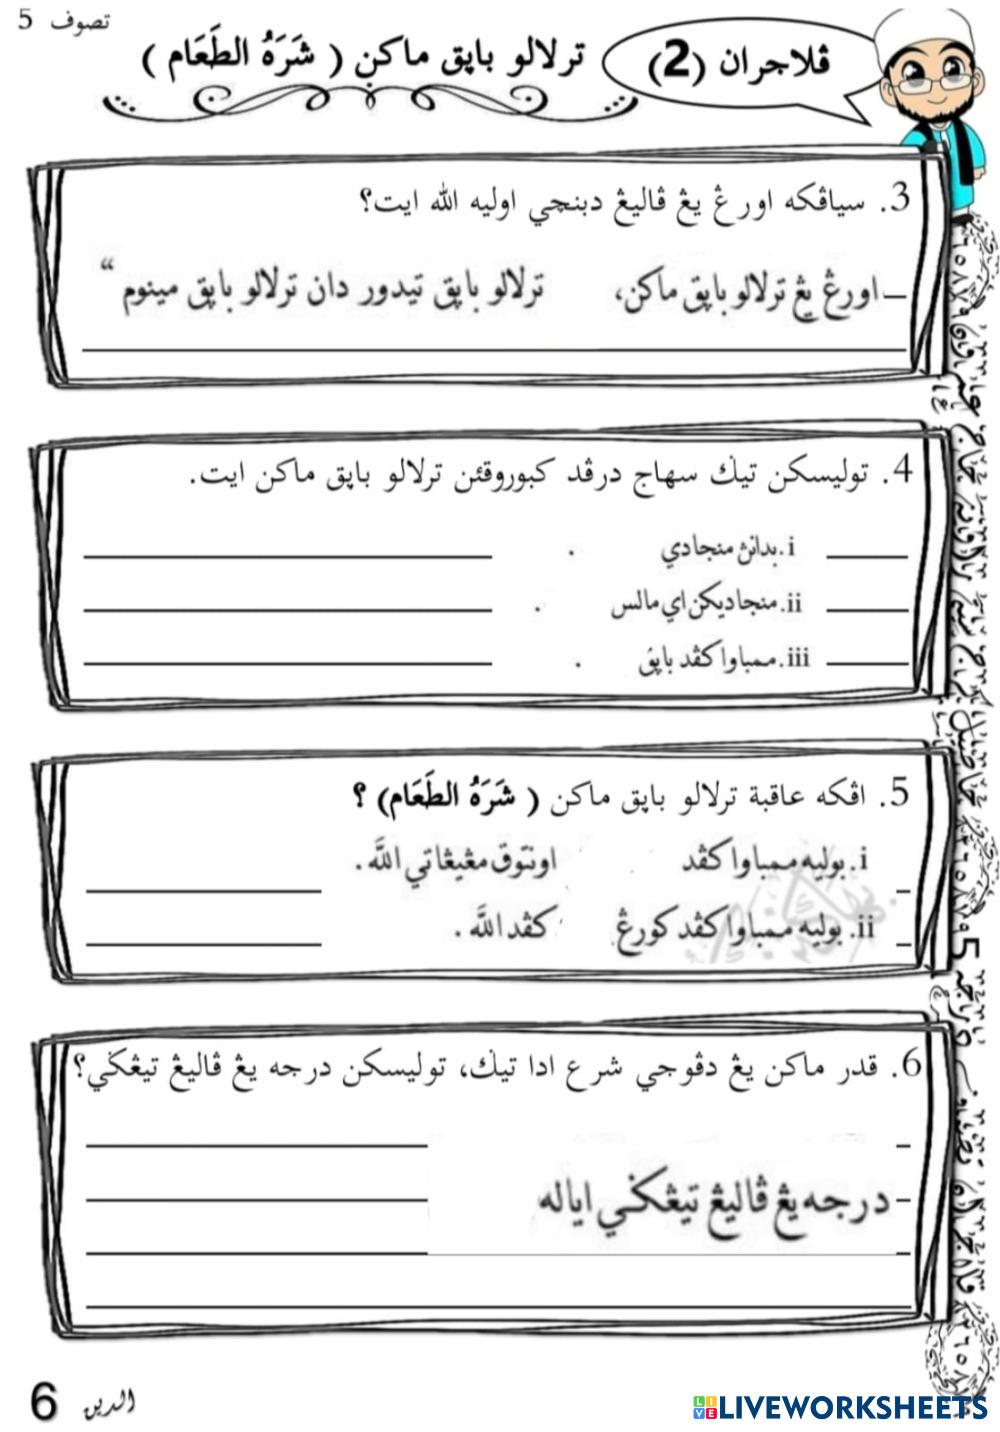 تصوف 5
ڤلاجرن (2)
ترلالو باڽق ماكن ( شَرَهُ الطَعَام )
3. سياڤكه اورڠ يڠ ڤاليڠ دبنچي اوليه الله ايت؟
اورڠ يڠ ترلالو باڽق ماكن، ترلالو باڽق تيدور دان ترلالو باڽق مينوم “
4. توليسكن تيݢ سهاج درڤد كبوروقئن ترلالو باڽق ماكن ايت.
i. بدانڽ منجادي .
ii. منجاديكن اي مالس .
iii. ممباوا كڤد باڽق .
5. اڤكه عاقبة ترلالو باڽق ماكن ( شَرَهُ الطَعَام) ؟
i. بوليه ممباوا كڤد اونتوق مڠيڠاتي اللّٰه .
ii. بوليه ممباوا كڤد كورڠ كڤد اللّٰه .
6. قدر ماكن يڠ دڤوجي شرع ادا تيݢ، توليسكن درجه يڠ ڤاليڠ تيڠݢي؟
درجه يڠ ڤاليڠ تيڠݢي اياله
6 الدين
LIVEWORKSHEETS